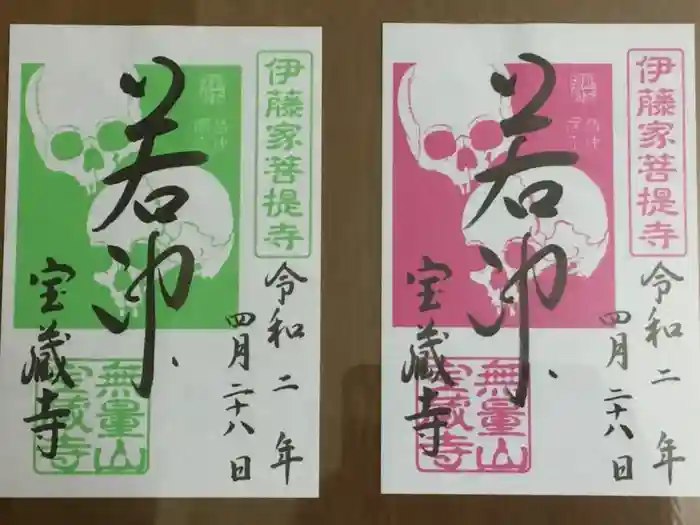 伊藤家菩提寺
令和二年
四月二十八日
若冲
無量山
宝蔵寺
宝蔵寺
伊藤家菩提寺
令和二年
四月二十八日
若冲
無量山
宝蔵寺
宝蔵寺